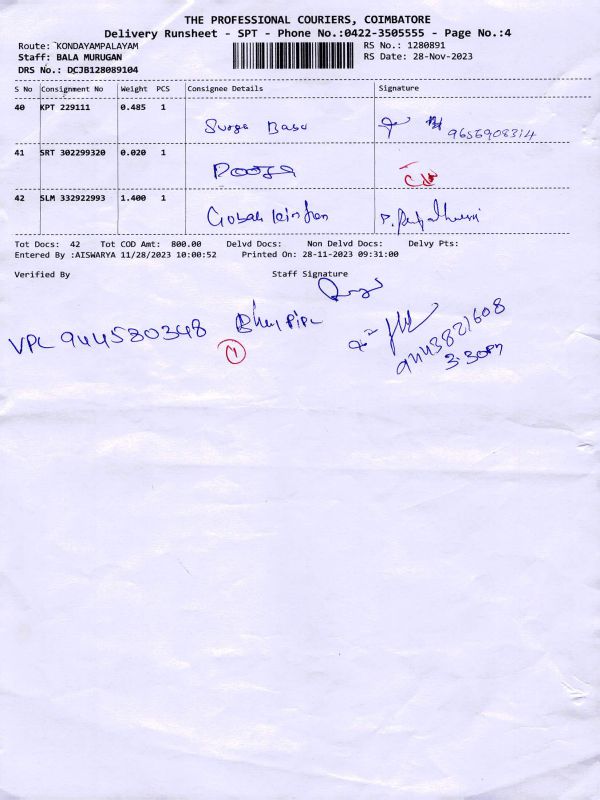 THE PROFESSIONAL COURIERS, COIMBATORE
Delivery Runsheet - SPT - Phone No.:0422-3505555 - Page No.:4
Route: KONDAYAMPALAYAM RS No.: 1280891
Staff: BALA MURUGAN RS Date: 28-Nov-2023
DRS No.: DCJB128089104
S No Consignment No Weight PCS Consignee Details Signature
40 KPT 229111 0.485 1
Surya Basu 9656908314
41 SRT 302299320 0.020 1
Pooja
42 SLM 332922993 1.400 1
Tot Docs: 42 Tot COD Amt: 800.00 Delvd Docs: Non Delvd Docs: Delvy Pts:
Entered By :AISWARYA 11/28/2023 10:00:52 Printed On: 28-11-2023 09:31:00
Verified By Staff Signature
VPL 944580348
9443821608
3.30PM